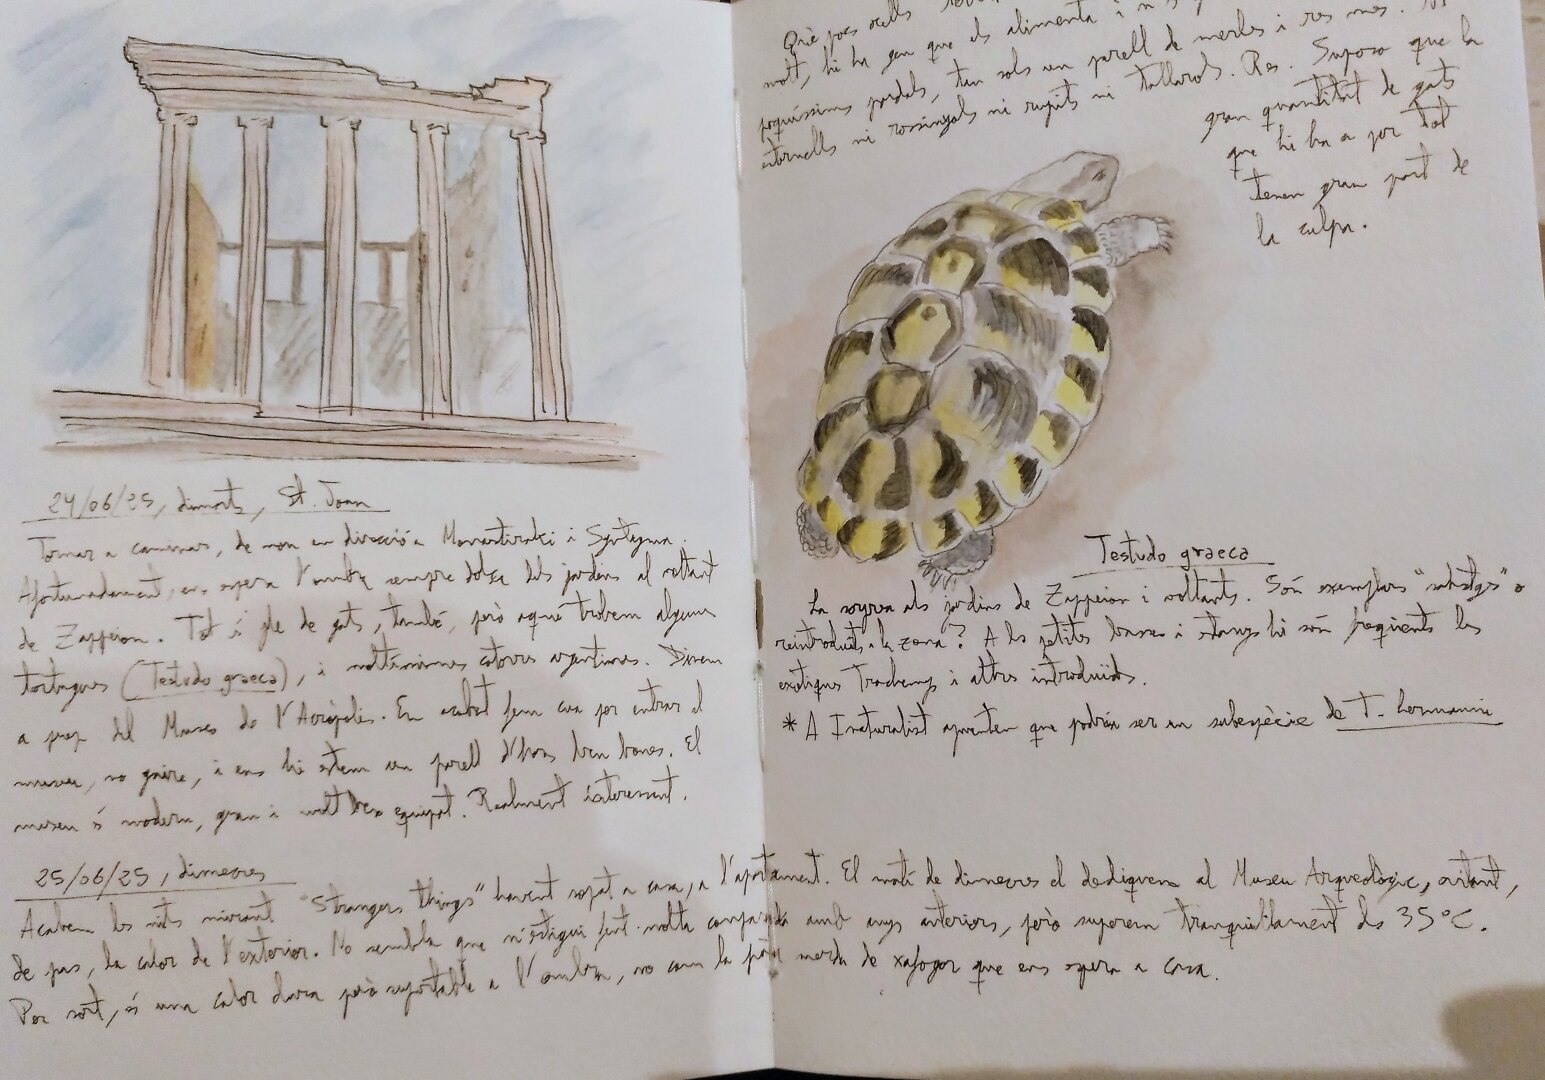 24/06/25, dimarts, St. Joan
Tornar a caminar, de nou en direcció a Monastiraki i Syntagma.
Afortunadament, ens espera l'ombra sempre dolça dels jardins al voltant
de Zappeion. Tot i ple de gats, també, però aquí trobem alguna
tortugues (Testudo graeca), i moltíssimes cotorres argentines. Dinem
a prop del Museu de l'Acròpolis. En acabat fem cua per entrar al
museu, no gaire, i ens hi estem un parell d'hores ben bones. El
museu és modern, gran i molt ben equipat. Realment interessant.
25/06/25, dimecres
Acabem les nits mirant "Strangers things" havent sopat a casa, a l'apartament. El matí de dimecres el dediquem al Museu Arqueològic, evitant,
de pas, la calor de l'exterior. No sembla que n'estigui fent molta comparada amb anys anteriors, però superem tranquil·lament els 35ºC.
Per sort, és una calor dura però suportable a l'ombra, no com la puta merda de xafogor que ens espera a casa.
Què pocs ocells
molt, hi ha gent que els alimenta i
poquíssims pardals, tan sols un parell de merles i res més. Ni
estornells ni rossinyols ni rupits ni tallarols. Res. Suposo que la
gran quantitat de gats
que hi ha a por tot
tenen gran part de
la culpa.
Testudo graeca
La sorpresa als jardins de Zappeion i voltants. Són exemplars "salvatges" o
reintroduïts a la zona? A les petites basses i estanys hi són freqüents les
exòtiques Trachemys i altres introduïdes.
* A Inaturalist apunten que podria ser un subespècie de T. hermanni